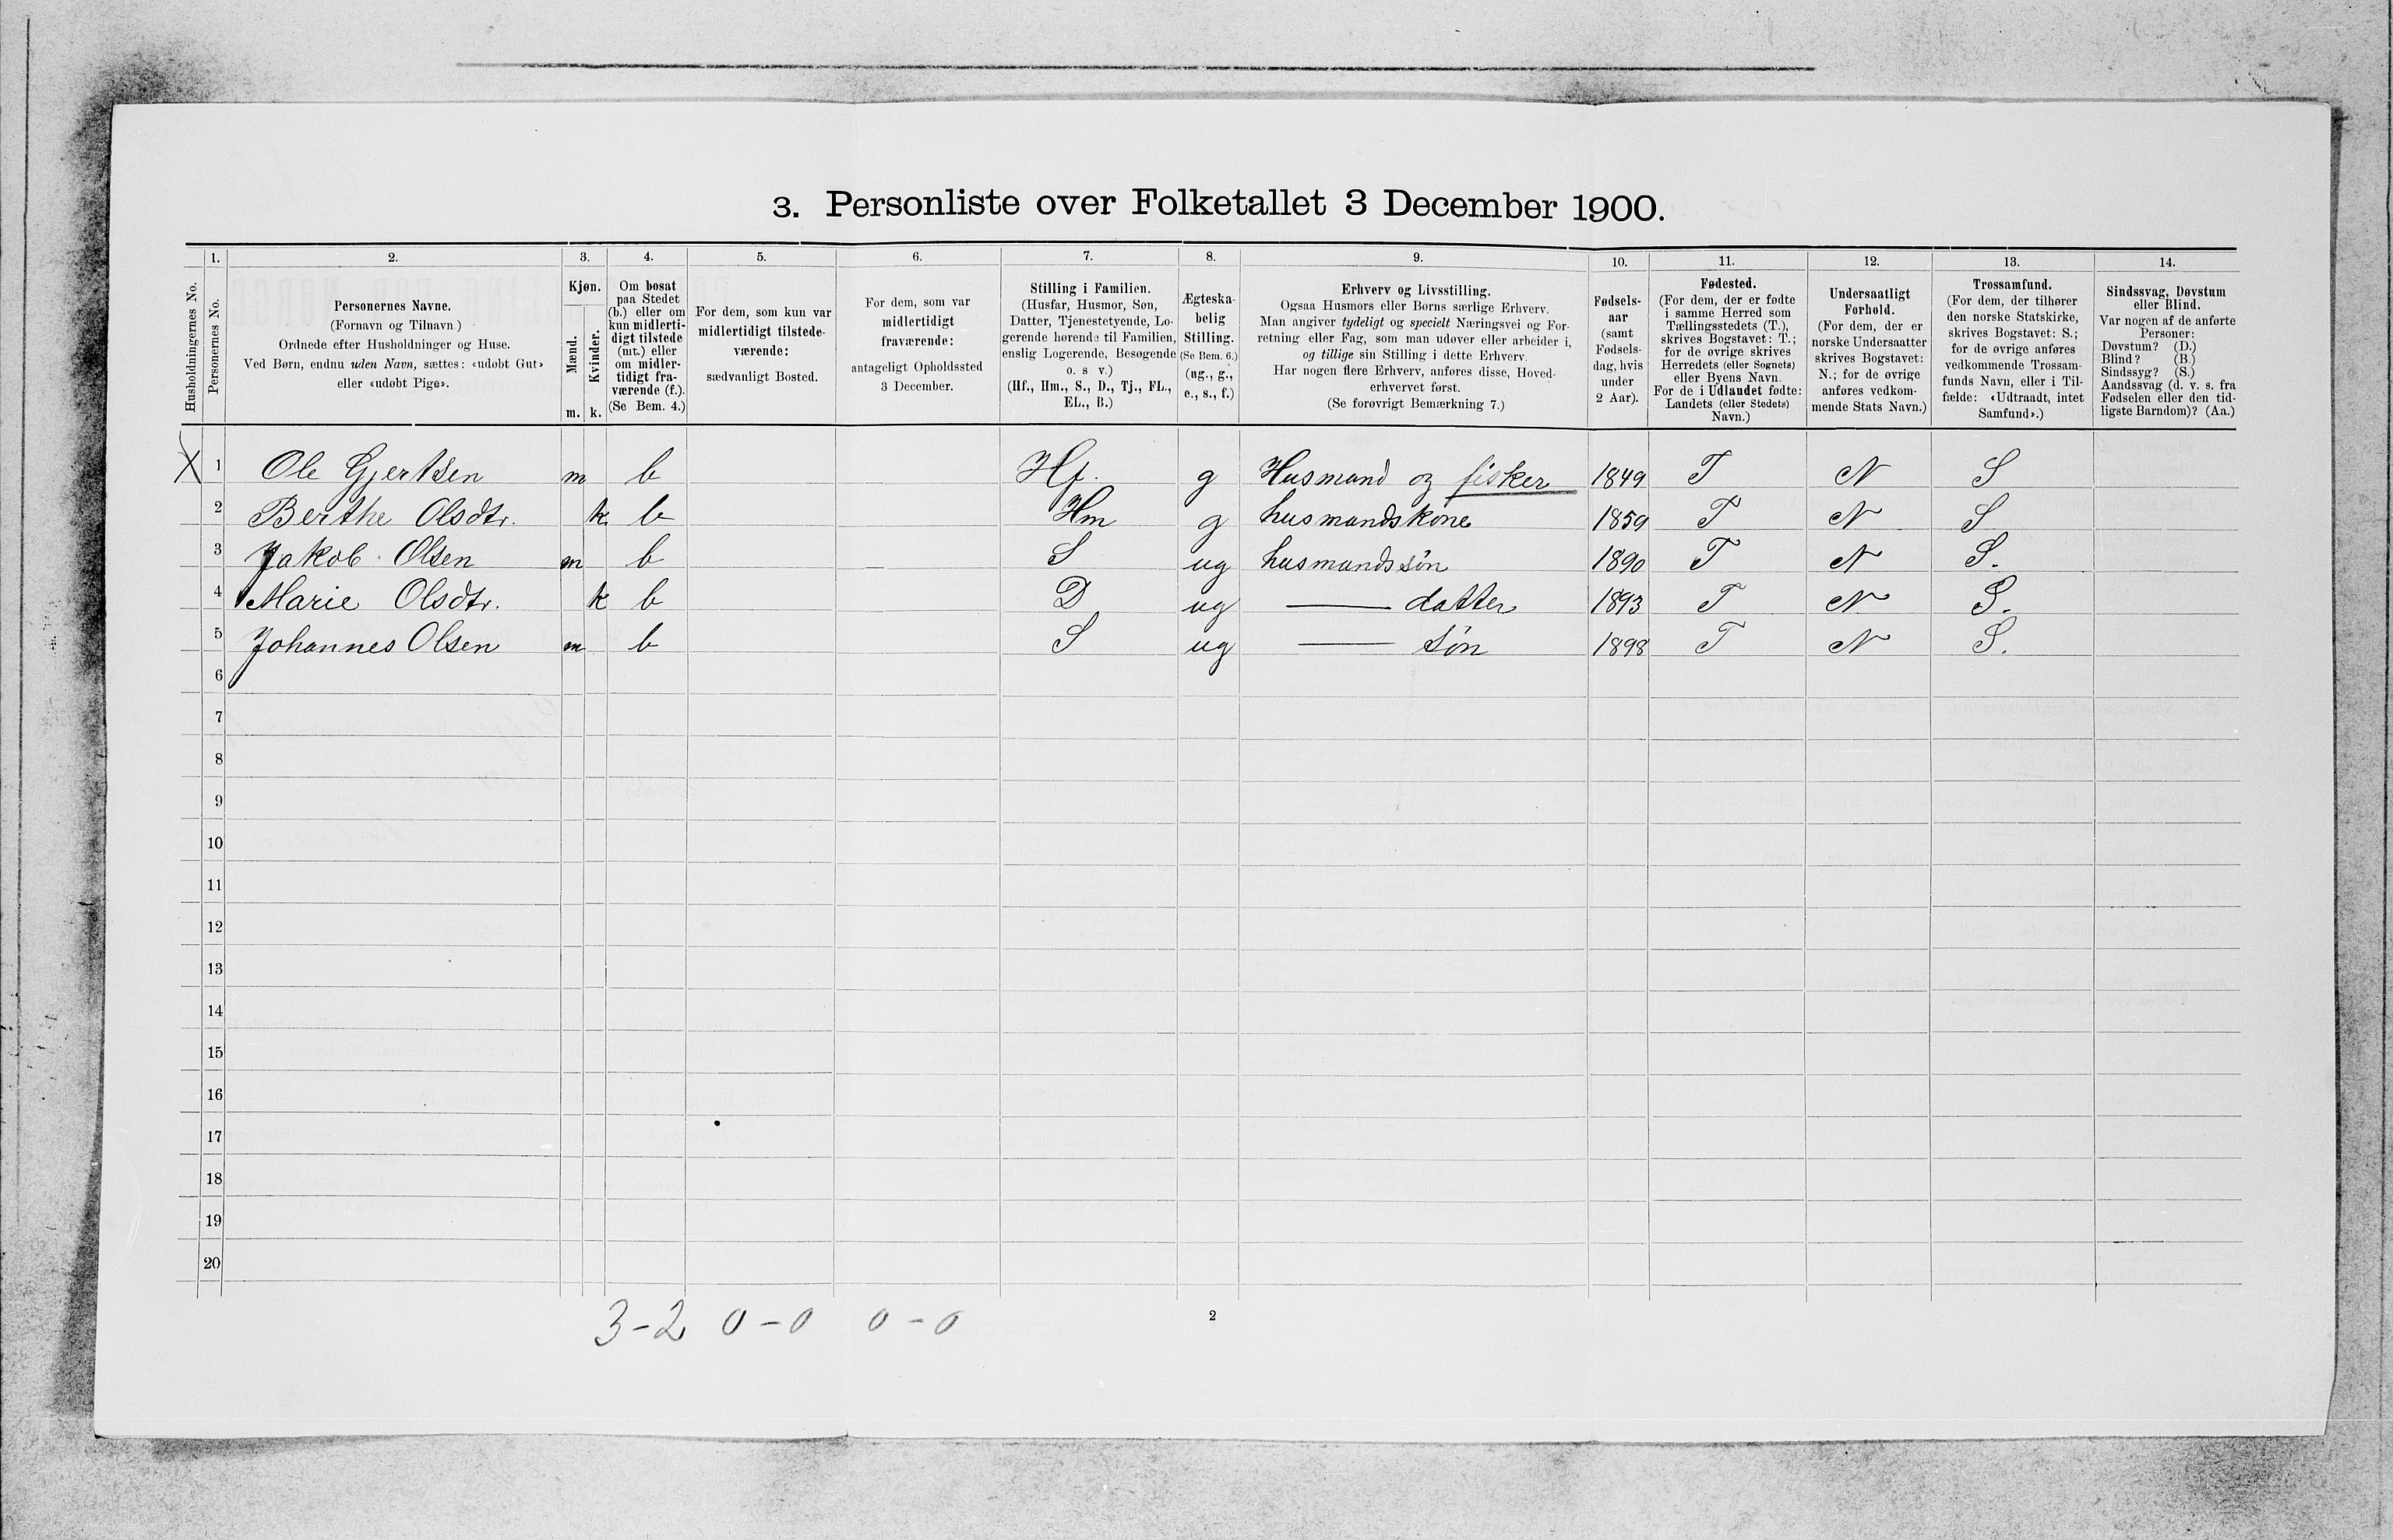 3. Personliste over Folketallet 3 December 1900.
Husholdningernes No.
1.
Personernes No.
2.
Personernes Navne.
(Fornavn og Tilnavn.)
Ordnede efter Husholdninger og Huse.
Ved Børn, endnu uden Navn, sættes: «udøbt Gut»
eller «udøbt Pige».
3.
Kjøn.
Mænd.
m.
Kvinder.
k.
4.
Om bosat
paa Stedet
(b.) eller om
kun midlerti-
digt tilstede
(mt.) eller
om midler-
tidigt fra-
værende (f.).
(Se Bem. 4.)
5.
For dem, som kun var
midlertidigt tilstede-
værende:
sædvanligt Bosted.
6.
For dem, som var
midlertidigt
fraværende:
antageligt Opholdssted
3 December.
7.
Stilling i Familien.
(Husfar, Husmor, Søn,
Datter, Tjenestetyende, Lo-
gerende hørende til Familien,
enslig Logerende, Besøgende
o. s v.)
(Hf., Hm., S., D., Tj., FL.,
EL., B.)
8.
Ægteska-
belig
Stilling.
(Se Bem. 6.)
(ug., g.,
e., s., f.)
9.
Erhverv og Livsstilling.
Ogsaa Husmors eller Børns særlige Erhverv.
Man angiver tydeligt og specielt Næringsvei og For-
retning eller Fag, som man udøver eller arbeider i,
og tillige sin Stilling i dette Erhverv.
Har nogen flere Erhverv, anføres disse, Hoved-
erhvervet først.
(Se forøvrigt Bemærkning 7.)
10.
Fødsels-
aar
(samt
Fødsels-
dag, hvis
under
2 Aar).
11.
Fødested.
(For dem, der er fødte
i samme Herred som
Tællingsstedets (T.),
skrives Bogstavet: T.;
for de øvrige skrives
Herredets (eller Sognets)
eller Byens Navn.
For de i Udlandet fødte:
Landets (eller Stedets)
Navn.)
12.
Undersaatligt
Forhold.
(For dem, der er
norske Undersaatter
skrives Bogstavet:
N.; for de øvrige
anføres vedkom-
mende Stats Navn.)
13.
Trossamfund.
(For dem, der tilhører
den norske Statskirke,
skrives Bogstavet: S.;
for de øvrige anføres
vedkommende Trossam-
funds Navn, eller i Til-
fælde: «Udtraadt, intet
Samfund».)
14.
Sindssvag, Døvstum
eller Blind.
Var nogen af de anførte
Personer:
Døvstum? (D.)
Blind? (B.)
Sindssyg? (S.)
Aandssvag (d. v. s. fra
Fødselen eller den tid-
ligste Barndom)? (Aa.)
X 1 Ole Gjertsen m b Hf. g Husmand og fisker 1849 T N S
2 Berthe Olsdtr. k b Hm g husmandskone 1859 T N S
3 Jakob Olsen m b S ug husmandssøn 1890 T N S.
4 Marie Olsdtr. k b D ug — datter 1893 T N S.
5 Johannes Olsen m b S ug — søn 1898 T N S.
6
7
8
9
10
11
12
13
14
15
16
17
18
19
20
3-2 0-0 0-0
2